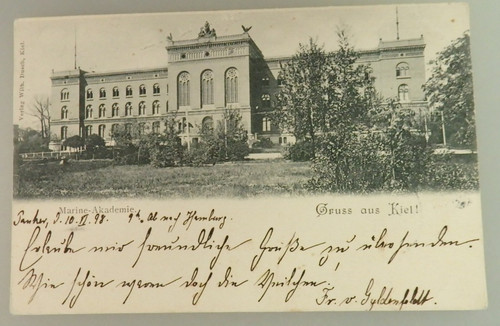 Verlag Wilh. Dreesh, Kiel
Marine-Akademie.
Gruss aus Kiel!
d. 10-II. 98. 9h Ab nach Hamburg.
Erlaube mir freundliche Grüße zu übersenden.
Wie schön waren doch die Veilchen.
Fr. v. Gyldenfeldt.